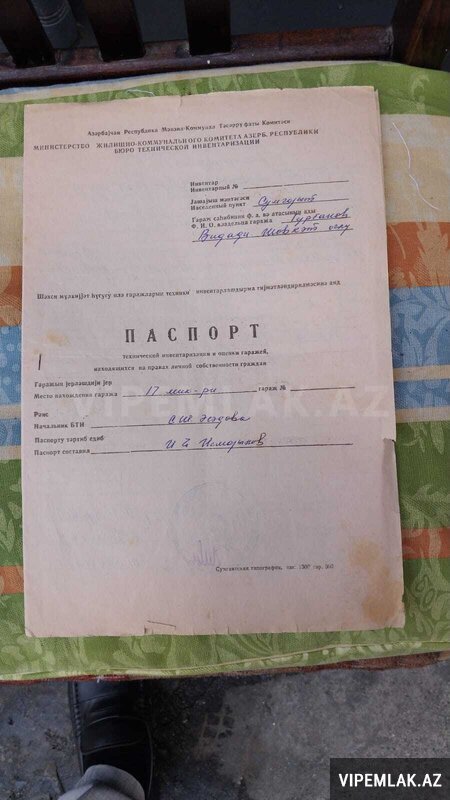 Азәрбајҹан Республика Мәнзил-Коммунал Тәсәрруфаты Комитәси
МИНИСТЕРСТВО ЖИЛИЩНО-КОММУНАЛЬНОГО КОМИТЕТА АЗЕРБ. РЕСПУБЛИКИ
БЮРО ТЕХНИЧЕСКОЙ ИНВЕНТАРИЗАЦИИ
Инвентар
Инвентарный №
Јашајыш мәнтәгәси
Населенный пункт Сумгајыт
Гараж сәһибинин ф. а. вә атасынын ады
Ф. И. О. владельца гаража Гурбанов
Видади Шөвкәт оғлу
Шәхси мүлкијјәт һүгугу илә гаражларын техники инвентарлашдырма гијмәтләндирилмәсинә аид
ПАСПОРТ
технической инвентаризации и оценки гаражей,
находящихся на правах личной собственности граждан
Гаражын јерләшдији јер
Место нахождения гаража 17 мик-рн гараж №
Рәис
Начальник БТИ
Паспорту тәртиб едиб
Паспорт составил
Сумгаитская типография, зак.
VIPEMLAK.AZ
VIPEMLAK.AZ